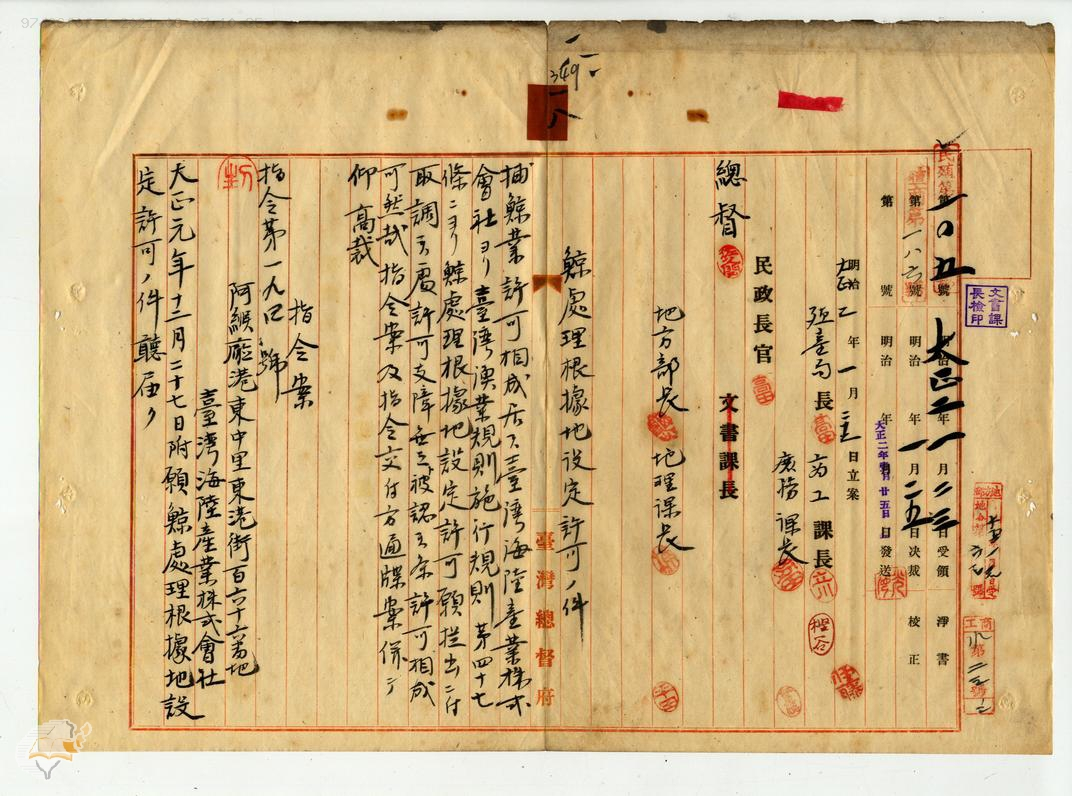 民殖第一〇五號 大正二年一月二三日受領 淨書
第一八六號 明治 年一月二五日決裁 校正
第 號 明治 年 月 日發送
大正二年壹月廿五日
文書課長檢印
明治大正二年一月 日立案
殖產局長 商工課長
庶務課長
民政長官
總督 文書課長
地方部長 地理課長
鯨處理根據地設定許可ノ件
捕鯨業許可相成居ル臺灣海陸產業株式
會社ヨリ臺灣漁業規則施行規則第四十七
條ニヨリ鯨處理根據地設定許可願提出ニ付
取調候處許可支障無之被認候条許可相成
可然哉指令案及指令交付方通牒案併テ
仰高裁
指令案
指令第一九四號
阿緱廳港東中里東港街百六十六番地
臺灣海陸產業株式會社
大正元年十二月二十七日附願鯨處理根據地設
定許可ノ件聽届ク
臺灣總督府
349